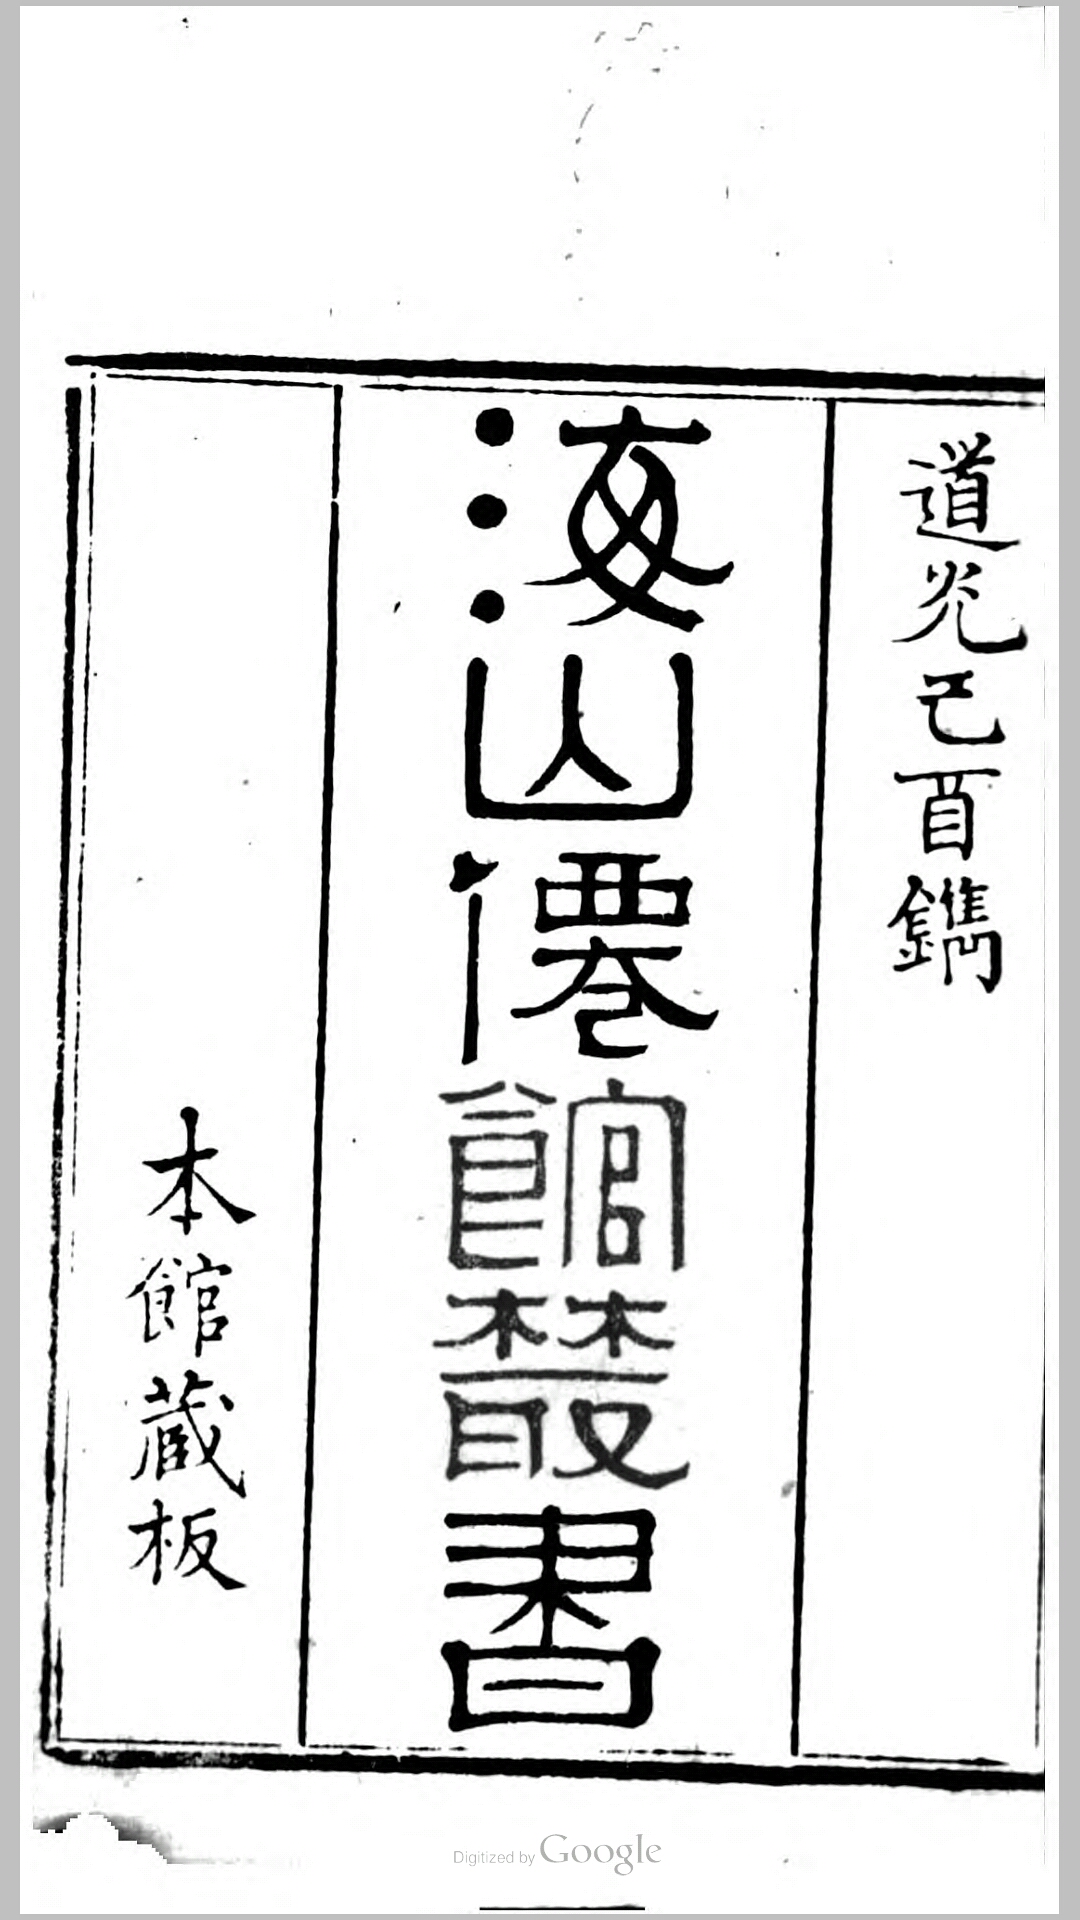 道光己酉鐫
海山僊館叢書
本館藏板
Digitized by Google